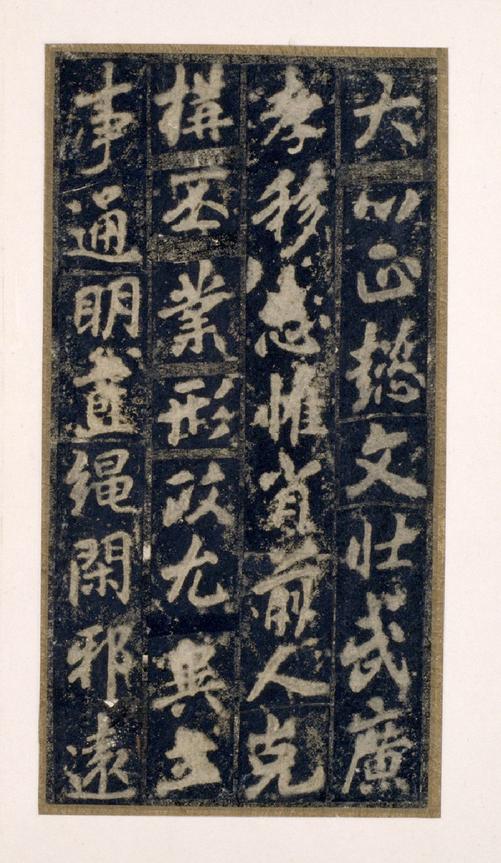 大以正懿文壯武廣
孝移忠惟肖前人克
搆丕業形政尤異立
事通明直繩閑邪遠